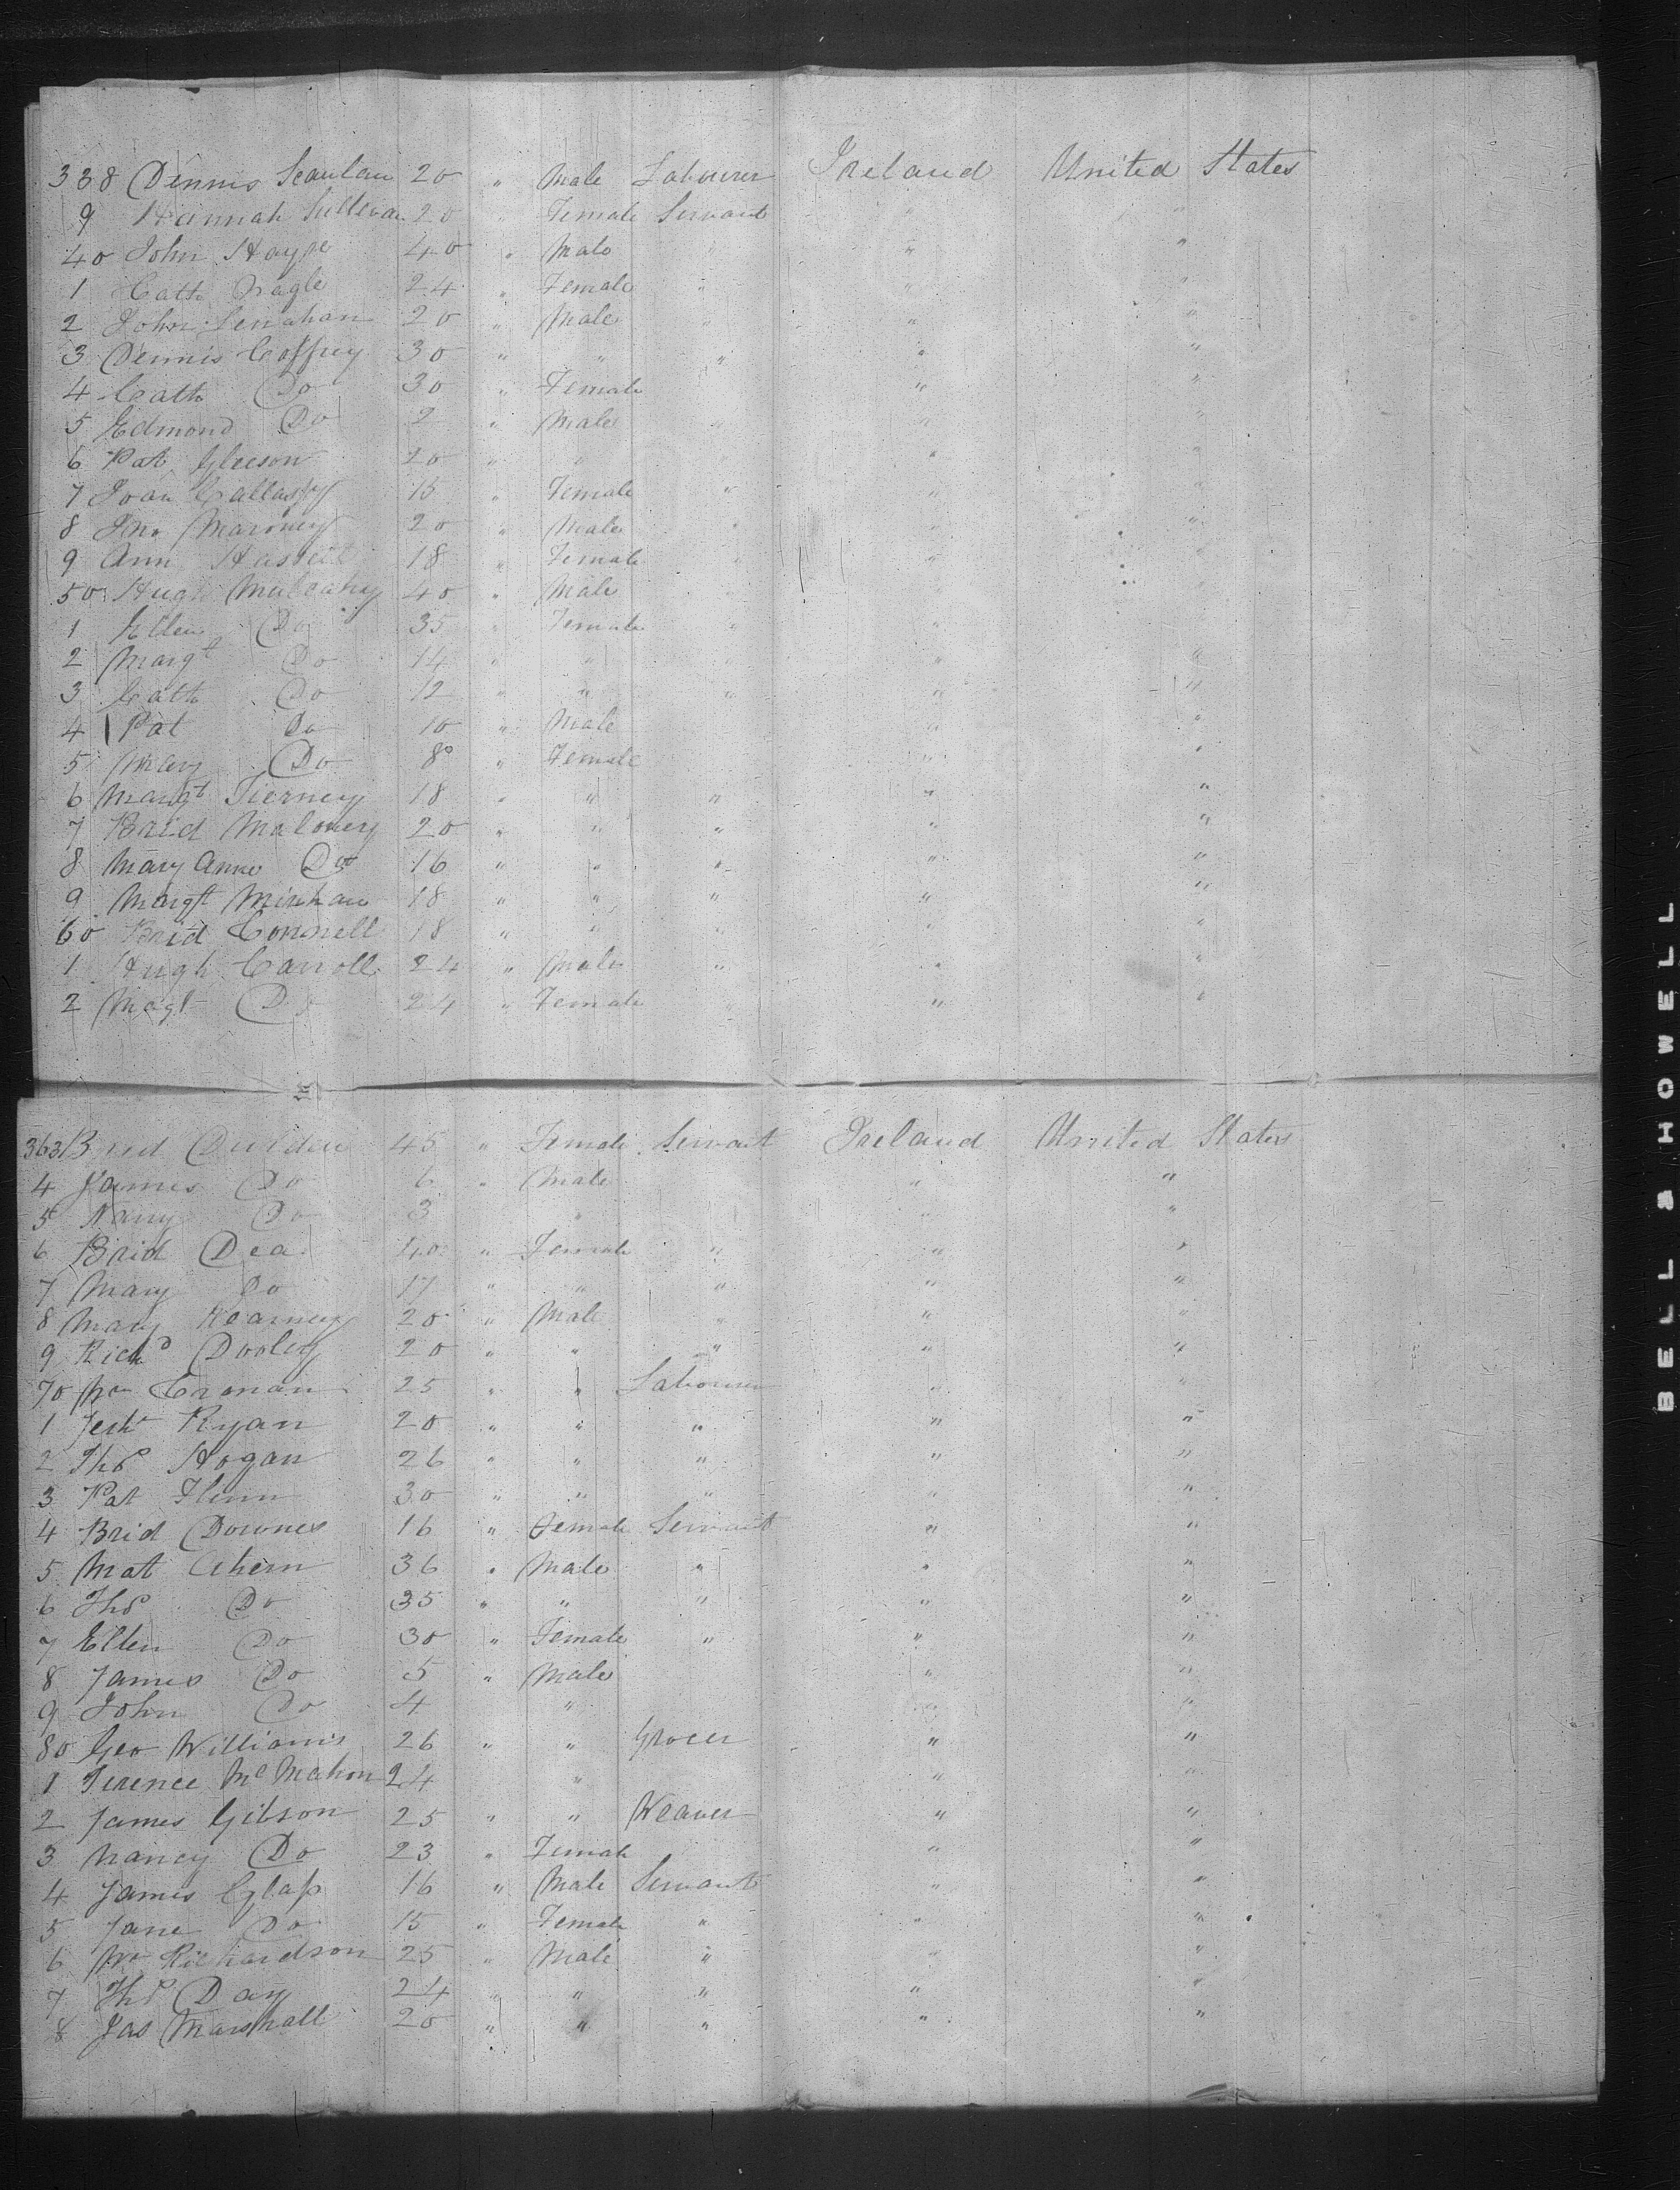 338 Dennis Scanlan 20 " Male Labourer Ireland United States
9 Hannah Sullivan 20 " Female Servant " "
40 John Hayse 40 " Male " " "
1 Cath Nagle 24 " Female " " "
2 John Lenahan 20 " Male " " "
3 Dennis Caffrey 30 " " " " "
4 Cath Do 30 " Female " "
5 Edmond Do 2 " Male " " "
6 Pat Gleeson 20 " " " "
7 Joan 15 " Female " " "
8 Jno Maroney 20 " Male " " "
9 Ann 18 " Female " " "
50 Hugh Mulcahy 40 " Male " " "
1 Ellen Do 35 " Female " " "
2 Margt Do 14 " " " " "
3 Cath Do 12 " " " " "
4 Pat Do 10 " Male " "
5 Mary Do 8 " Female " "
6 Margt Tierney 18 " " " " "
7 Brid Maloney 20 " " " " "
8 Mary Anne Do 16 " " " " "
9 Margt Minhan 18 " " " " "
60 Brid Connell 18 " " " " "
1 Hugh Carroll 24 " Male " " "
2 Magt Do 24 " Female " " "
363 Brid 45 " Female Servant Ireland United States
4 James Do 6 " Male " "
5 Do 3 " " "
6 Brid Dea 40 " Female " " "
7 Mary Do 17 " " " " "
8 Mary Kearney 20 " Male " " "
9 Richd Dooley 20 " " " " "
70 Cronan 25 " " Labourer " "
1 Ryan 20 " " " " "
2 Thos Hogan 26 " " " " "
3 Pat Flinn 30 " " " " "
4 Brid Downes 16 " Female Servant " "
5 Mat Ahern 36 " Male " " "
6 Thos Do 35 " " " " "
7 Ellen Do 30 " Female " " "
8 James Do 5 " Male " "
9 John Do 4 " " "
80 Geo Williams 26 " " Grocer " "
1 Terence McMahon 24 " " "
2 James Gibson 25 " " Weaver " "
3 Nancy Do 23 " Female " "
4 James Glass 16 " Male Servant " "
5 Jane Do 15 " Female " " "
6 Wm Richardson 25 " Male " " "
7 Thos Day 24 " " " " "
8 Jas Marshall 20 " " " " "
BELL & HOWELL